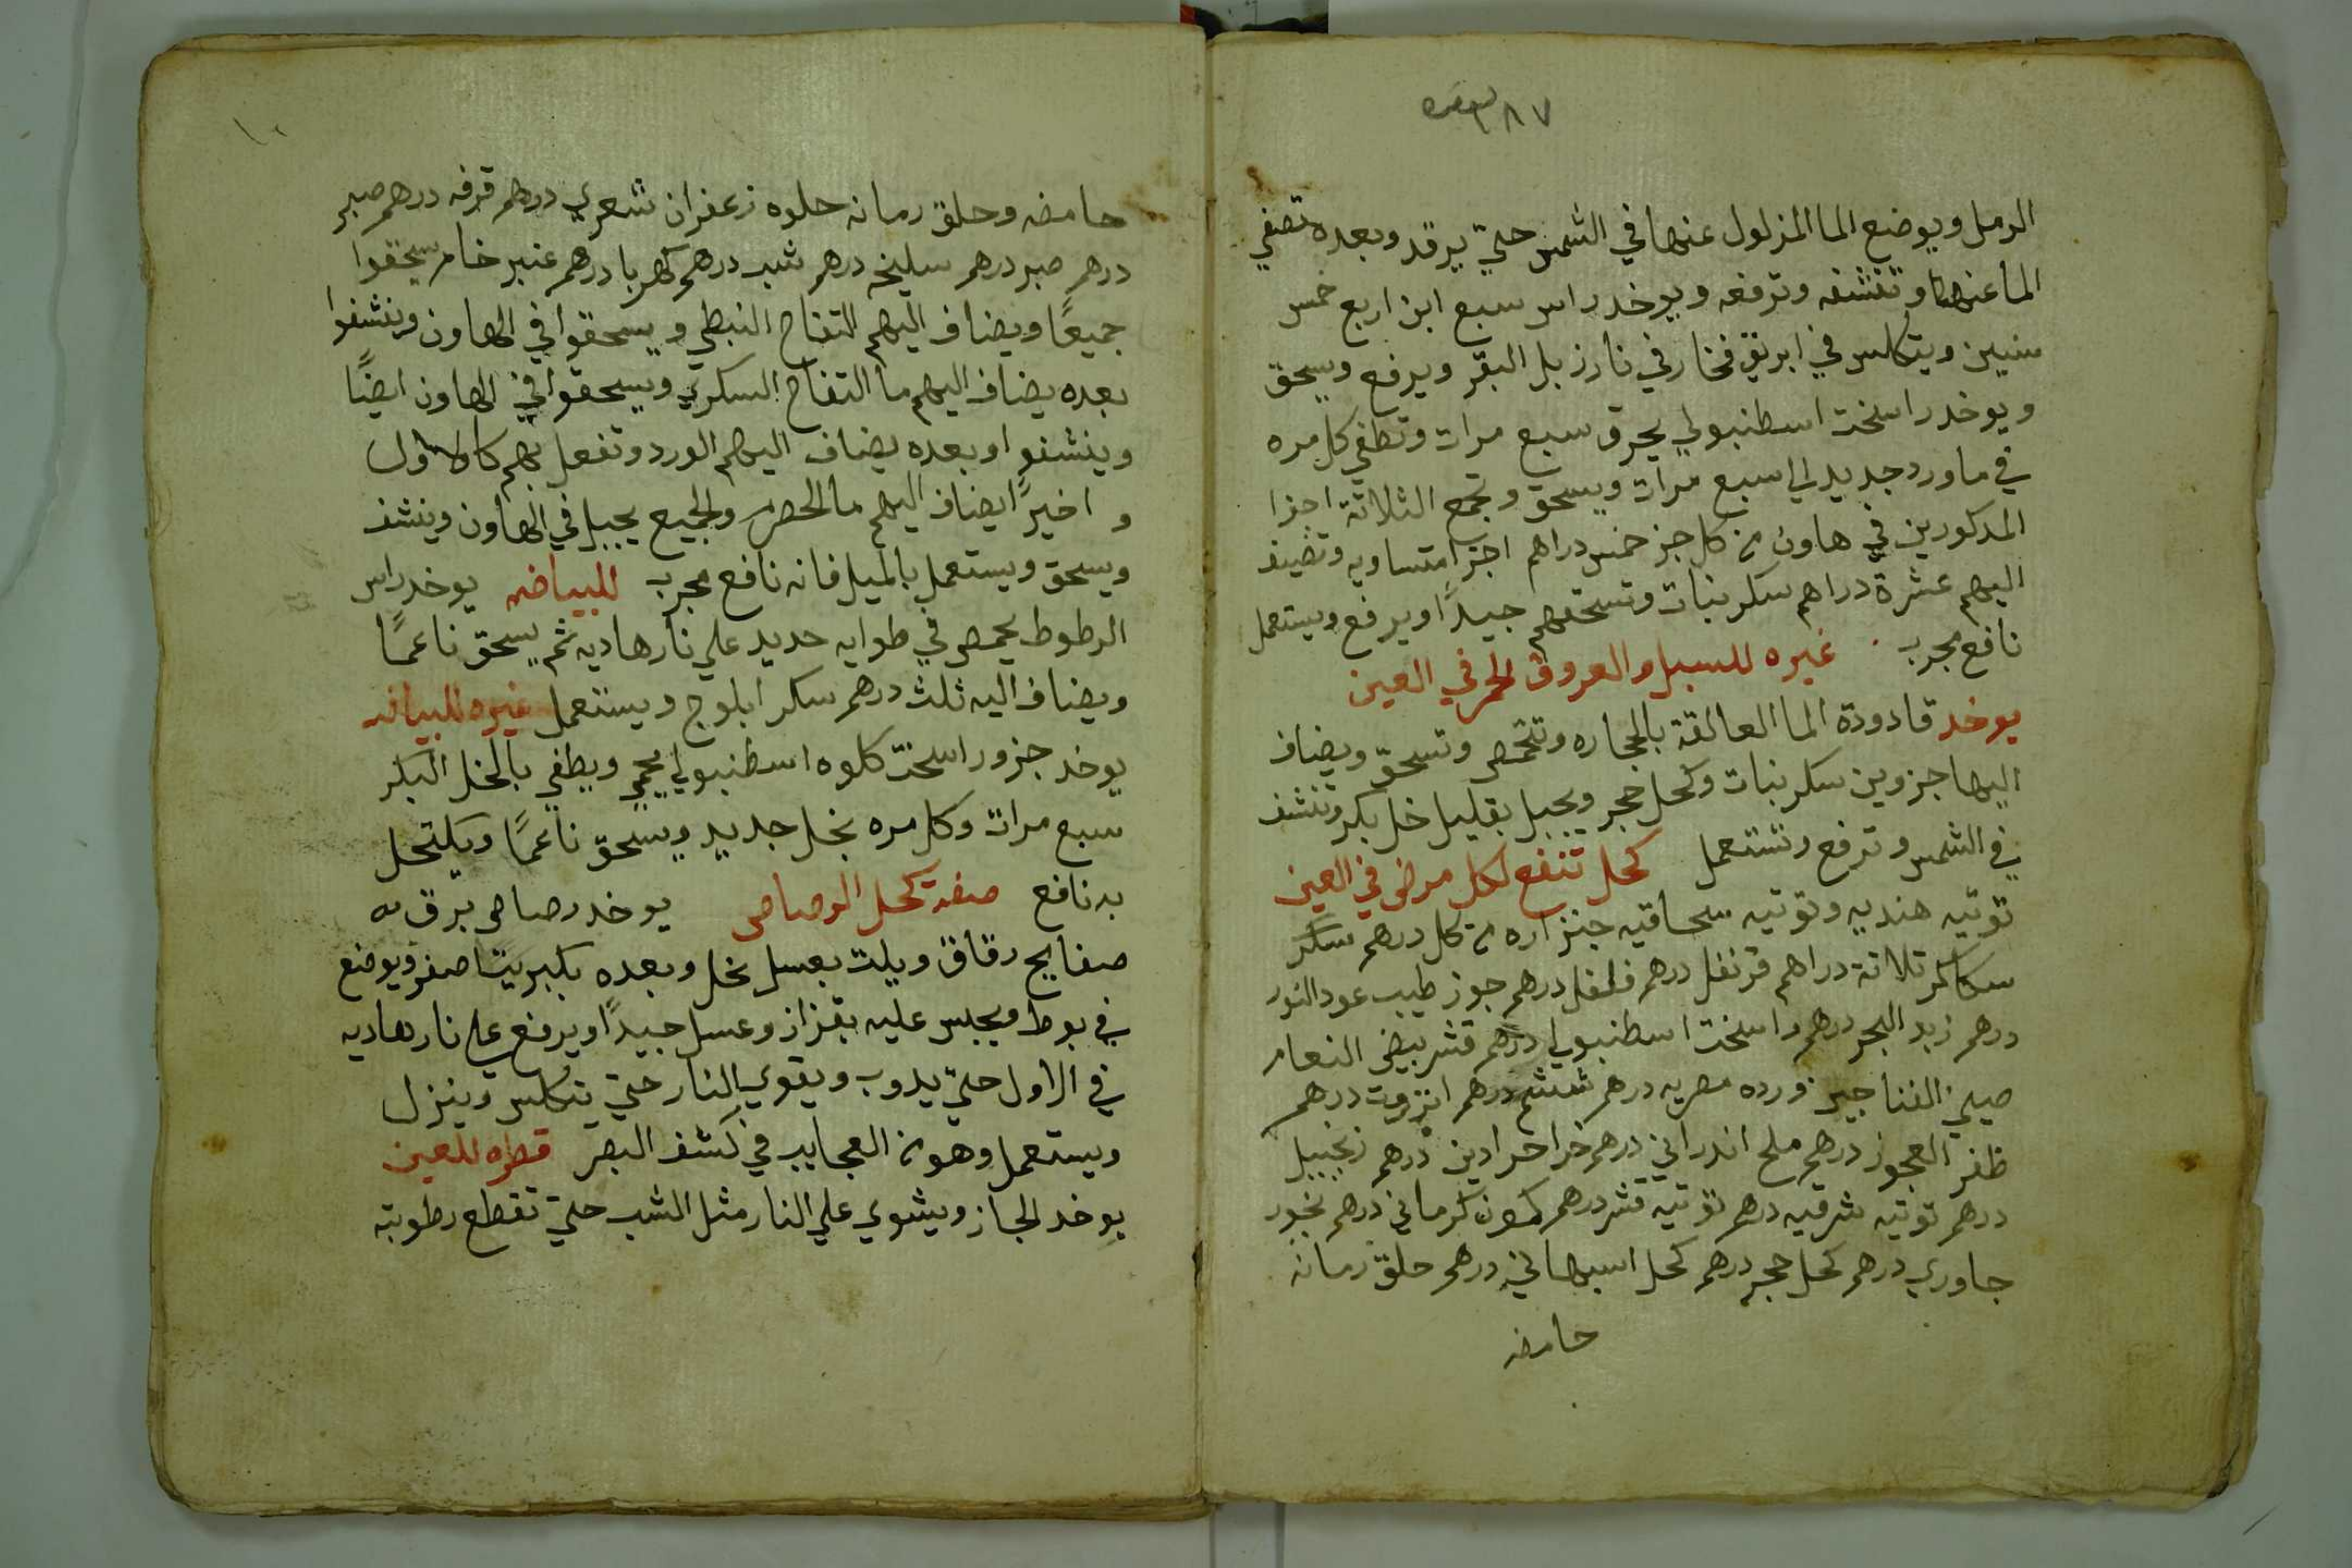 ٣٨٧
الرمل ويوضع الما المزلول عنها في الشمس حتي يرقد وبعده تصفي
الما عنها وتنشفه وترفعه ويوخد راس سبع ابن اربع خمس
سنين ويتكلس في ابريق فخار في نار زبل البقر ويرفع ويسحق
ويوخد راسخت اسطنبولي يحرق سبع مرات وتطفي كل مره
في ماورد جديد لي سبع مرات ويسحق وتجمع الثلاثة اجزا
المدكورين في هاون من كل جز خمس دراهم اجزا متساويه وتضيف
اليهم عشرة دراهم سكر نبات وتسحقهم جيدًا ويرفع ويستعمل
نافع مجرب غيره للسبل والعروق الحمر في العين
يوخد قادودة الما العالقة بالحجاره وتتحمص وتسحق ويضاف
اليها جزوين سكر نبات وكحل حجر ويجبل بقليل خل بكر وتنشف
في الشمس وترفع وتستعمل كحل تنفع لكل مرض في العين
توتيه هنديه وتوتيه سحاقيه جنزاره من كل درهم سكر
سكاكر تلاتة دراهم قرنفل درهم فلفل درهم جوز طيب عود النور
درهم زبد البحر درهم راسخت اسطنبولي درهم قشر بيض النعام
صيني الفناجين ورده مصريه درهم ششم درهم انزروت درهم
ظفر العجوز درهم ملح اندراني درهم خرا حرادين درهم زنجبيل
درهم توتيه شرقيه درهم توتيه قشر درهم كمون كرماني درهم بخور
جاوري درهم كحل حجر درهم كحل اسبهاني درهم حلق رمانه
حامضه
١٠
حامضه وحلق رمانه حلوه زعفران شعري درهم قرفه درهم صبر
درهم صبر درهم سليخه درهم شب درهم كهربا درهم عنبر خام سحقوا
جميعًا ويضاف اليهم التفاح النبطي ويسحقوا في الهاون وينشفوا
بعده يضاف اليهم ما التفاح السكري ويسحقوا في الهاون ايضًا
وينشفوا وبعده يضاف اليهم الورد وتفعل بهم كالاول
و اخيرًا يضاف اليهم ما الحصرم والجميع يجبل في الهاون وينشف
ويسحق ويستعمل بالميل فانه نافع مجرب للبياضه يوخد راس
الرطوط يحمص في طوايه حديد علي نار هاديه ثم يسحق ناعمًا
ويضاف اليه ثلث درهم سكر ابلوج ويستعمل غيره للبياضه
يوخد جزو راسخت كلوه اسطنبولي يحمي ويطفي بالخل البكر
سبع مرات وكل مره بخل جديد ويسحق ناعمًا ويكتحل
به نافع صفة كحل الرصاص يوخد رصاص يرق
صفايح رقاق ويلت بعسل نحل وبعده بكبريت اصفر ويوضع
في بوط ويجبس عليه بقزاز وعسل جيدًا ويرفع علي نار هاديه
في الاول حتي يدوب ويقوي النار حتي يتكلس وينزل
ويستعمل وهو من العجايب في كشف البصر قطره للعين
يوخد الجاز ويشوي علي النار مثل الشب حتي تقطع رطوبته